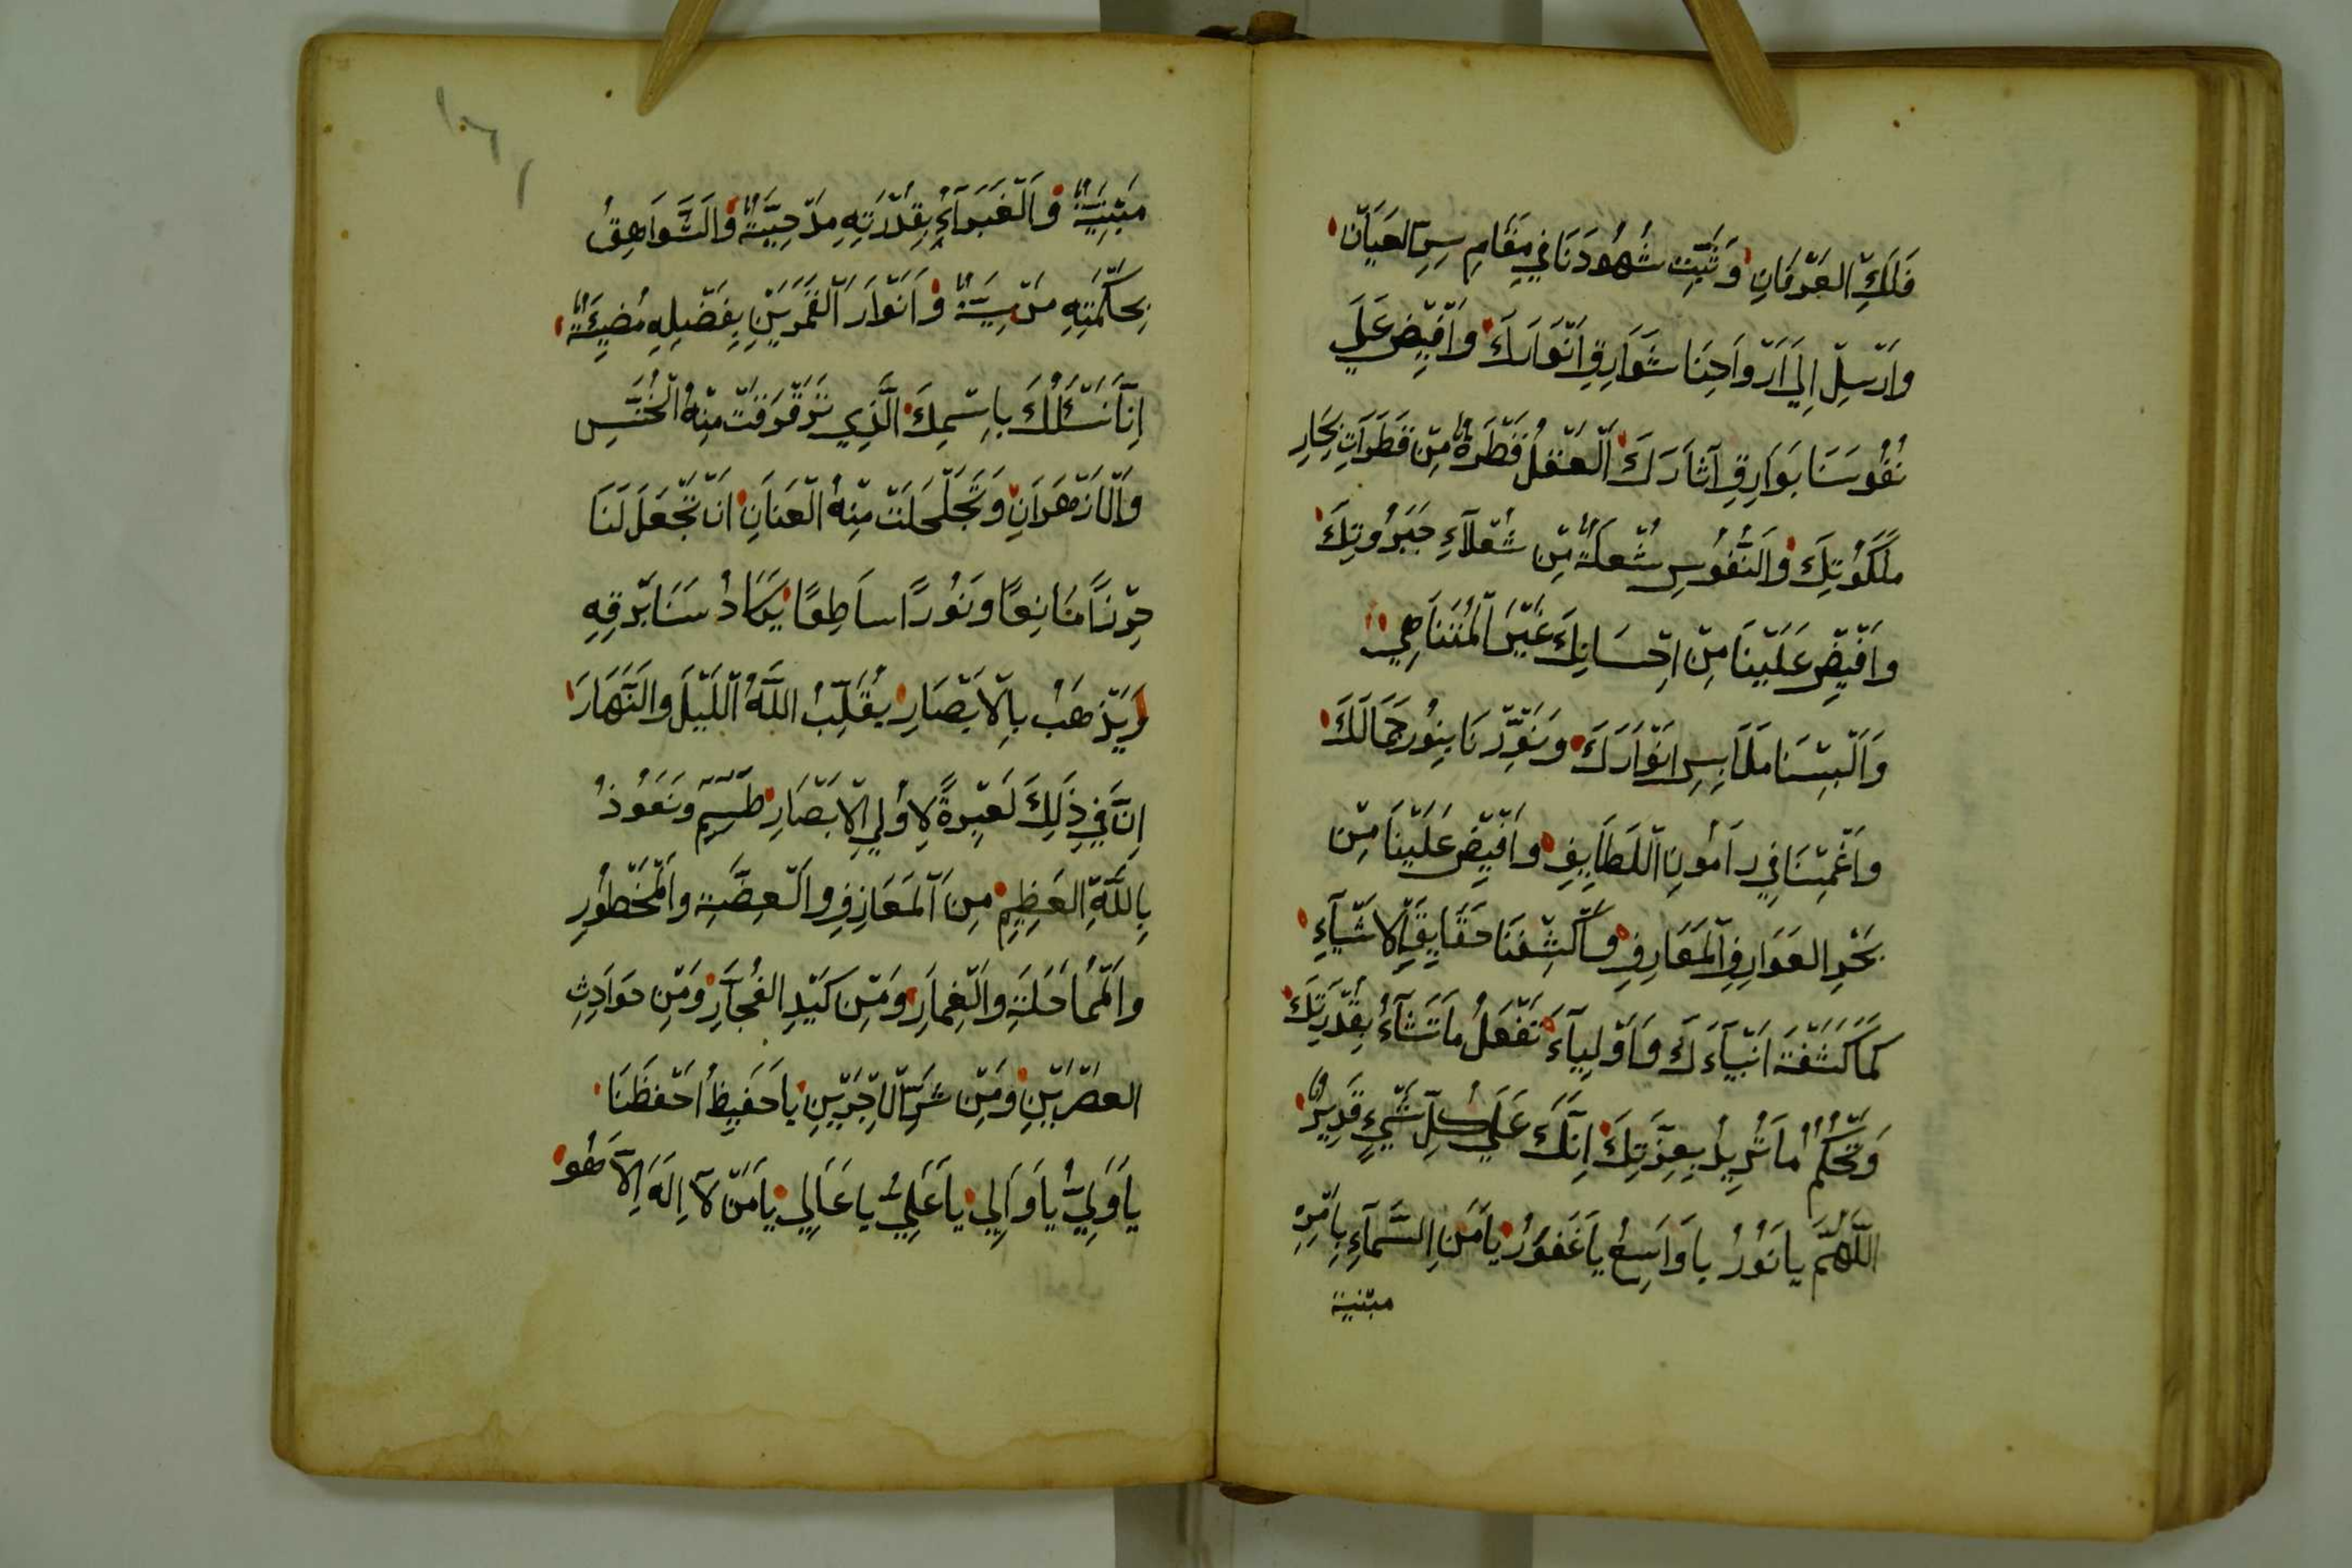 فَلَكِ العِرْفَانِ وَثَبِّتْ شُهُودَنَا فِي مَقَامِ سِرِّ العَيَانْ
وَاَرْسِلْ اِلَي اَرْوَاحِنَا شَوَارِقِ اَنْوَارِكَ وَاَفِيضْ عَلَي
نُفُوسَنَا بَوَارِقِ آثَارَكَ اَلْعَقْلُ قَطْرَةٌ مِنْ قَطَرَاتِ بِحَارِ
مَلَكُوتِكَ وَالنُّفُوسِ شُعْلَةٌ مِنْ شُعَلَآءِ جَبَرُوتِكَ
وَافِيضْ عَلَيْنَا مِنْ اِحْسَانِكَ غَيْرَ الْمُتَنَاهِي
وَاَلْبِسْنَا مَلَابِسِ اَنْوَارَكَ وَنَوِّرْنَا بِنُورِ جَمَالَكَ
وَاغْمِسْنَا فِي رامُونِ اللَّطَايِفِ وَاَفِيضْ عَلَيْنَا مِنْ
بَحْرِ العَوَارِفِ الْمَعَارِفِ وَاكْشِفْنَا حَقَايِقِ الاَشْيَآءِ
كَمَا كَشَفْتَهَ اَنْبِيَآءَكَ وَاَوْلِيَآءَ تَفْعَلُ مَا تَشَآءُ بِقُدْرَتِكَ
وَتَحْكُمُ مَا تُرِيدُ بِعِزَّتِكَ اِنَّكَ عَلَي كُلِّ شَيْءٍ قَدِيرٌ
اَللّٰهُمَّ يَا نُورُ يَا وَاسِعُ يَا غَفُورُ يَا مَنِ السَّمَآءِ بِاَمْرِهِ
مبنية
مَبْنِيَةٌ وَالْغَبَرَآءِ بِقُدْرَتِهِ مَدْحِيَّةٌ وَالشَّوَاهِقُ
بِحِكْمَتِهِ مَرْسِيَةٌ وَاَنْوَارَ الْقَمَرَيْنِ بِفَضْلِهِ مُضِيئَةٌ
اِنَّا نَسْئَلُكَ بِاسْمِكَ الَّذِي تَرَقْرَقَتْ مِنْهُ الْخُنَّسِ
وَالْاَزْهَرَانِ وَتَجَلْجَلَتْ مِنْهُ الْعَنَانِ اَنْ تَجْعَلَ لَنَا
حِرْزًا مَانِعًا وَنُورًا سَاطِعًا يَكَادُ سَنَا بَرْقِهِ
يَذْهَبُ بِالْاَبْصَارِ يُقَلِّبُ اللّٰهُ اللَّيْلَ وَالنَّهَارَ
اِنَّ فِي ذٰلِكَ لَعِبْرَةً لِاُولِي الْاَبْصَارِ طٰسٓمٓ وَنَعُوذُ
بِاللّٰهِ العَظِيمِ مِنَ الْمَعَازِفِ وَالْعِضَّةِ وَالْمَحْطُورِ
وَالْمُمَاحَلَةِ وَالْغِمَارِ وَمِنْ كَيْدِ الفُجَّارِ وَمِنْ حَوَادِثِ
العَصْرَيْنِ وَمِنْ شَرِّ الْاَجْرَيْنِ يَا حَفِيظُ احْفَظْنَا
يَا وَلِيُّ يَا وَالِي يَا عَلِيُّ يَا عَالِي يَا مَنْ لَآ اِلٰهَ اِلَّا هُو